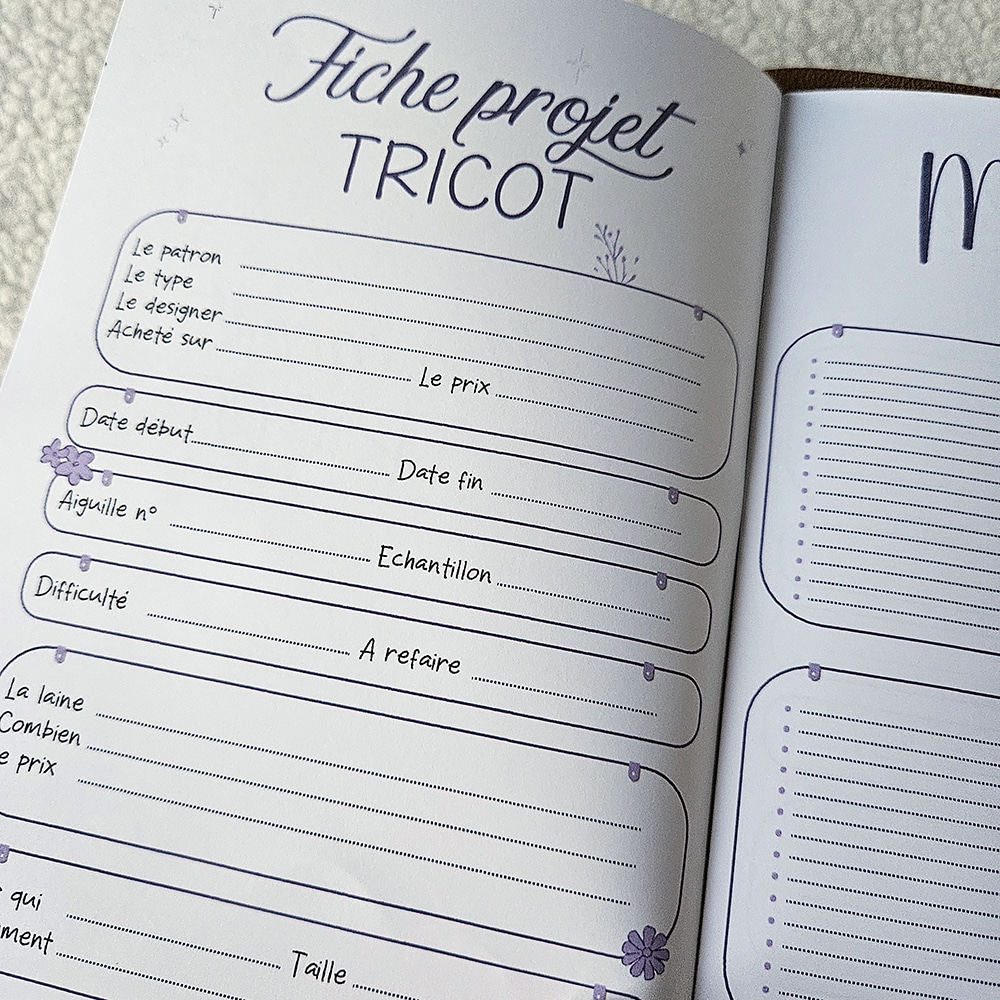 Fiche projet
TRICOT
Le patron
Le type
Le designer
Acheté sur Le prix
Date début Date fin
Aiguille n° Echantillon
Difficulté A refaire
La laine
Combien
e prix
qui
ment Taille
M